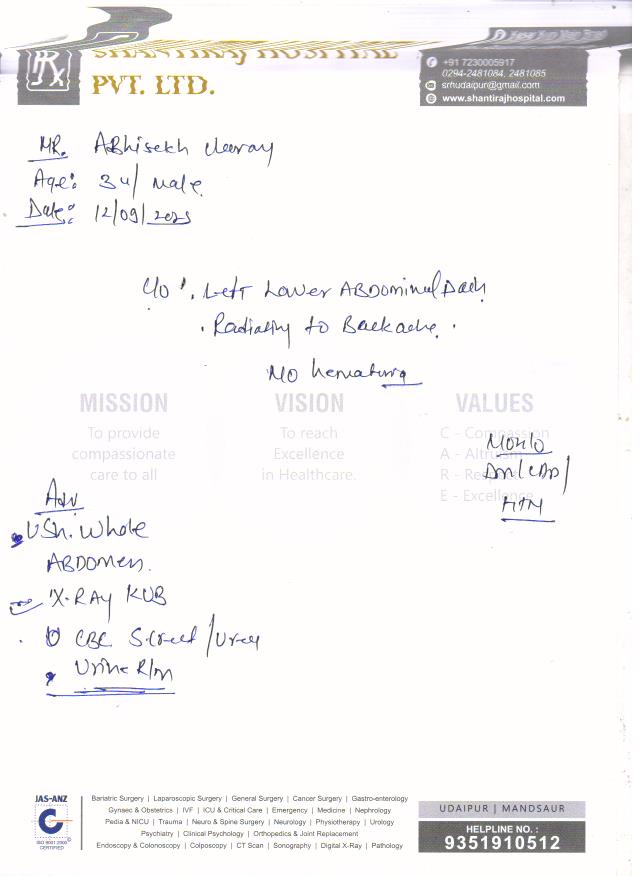 SHANTIRAJ HOSPITAL
PVT. LTD.
+91 7230005917
0294-2481084, 2481085
srhudaipur@gmail.com
www.shantirajhospital.com
MR. Abhisekh
Age: 34/ Male
Date: 12/09/2025
C/o Left Lower Abdominal
Radiating to Backache.
No hematuria
MISSION
To provide
compassionate
care to all
VISION
To reach
Excellence
in Healthcare.
VALUES
C - Compassion
A - Altruism
R - Respect
E - Excellence
No h/o
DM/CAD/
HTN
Adv
USG. Whole
ABDOMEN.
X-RAY KUB
CBC S.Creat/Urea
Urine R/m
JAS-ANZ
ISO 9001:2008
CERTIFIED
Bariatric Surgery | Laparoscopic Surgery | General Surgery | Cancer Surgery | Gastro-enterology
Gynaec & Obstetrics | IVF | ICU & Critical Care | Emergency | Medicine | Nephrology
Pedia & NICU | Trauma | Neuro & Spine Surgery | Neurology | Physiotherapy | Urology
Psychiatry | Clinical Psychology | Orthopedics & Joint Replacement
Endoscopy & Colonoscopy | Colposcopy | CT Scan | Sonography | Digital X-Ray | Pathology
UDAIPUR | MANDSAUR
HELPLINE NO. :
9351910512